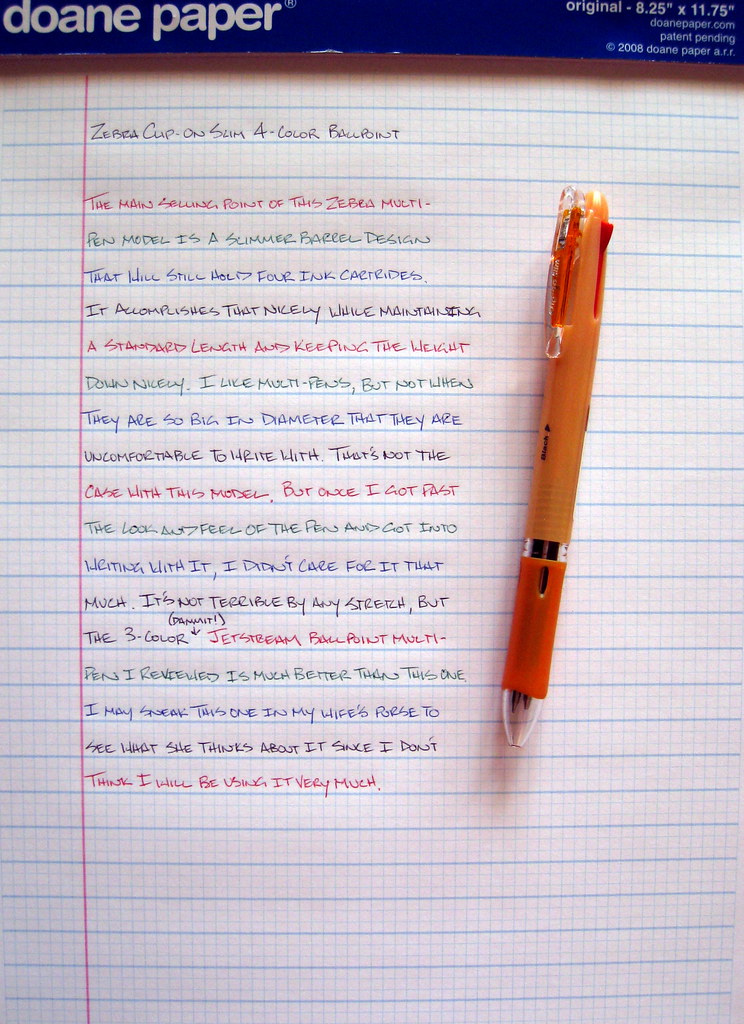 doane paper®
original - 8.25" x 11.75"
doanepaper.com
patent pending
© 2008 doane paper a.r.r.
ZEBRA CLIP-ON SLIM 4-COLOR BALLPOINT
THE MAIN SELLING POINT OF THIS ZEBRA MULTI-
PEN MODEL IS A SLIMMER BARREL DESIGN
THAT WILL STILL HOLD FOUR INK CARTRIDES.
IT ACCOMPLISHES THAT NICELY WHILE MAINTAINING
A STANDARD LENGTH AND KEEPING THE WEIGHT
DOWN NICELY. I LIKE MULTI-PENS, BUT NOT WHEN
THEY ARE SO BIG IN DIAMETER THAT THEY ARE
UNCOMFORTABLE TO WRITE WITH. THAT'S NOT THE
CASE WITH THIS MODEL. BUT ONCE I GOT PAST
THE LOOK AND FEEL OF THE PEN AND GOT INTO
WRITING WITH IT, I DIDN'T CARE FOR IT THAT
MUCH. IT'S NOT TERRIBLE BY ANY STRETCH, BUT
(DAMMIT!)
THE 3-COLOR JETSTREAM BALLPOINT MULTI-
PEN I REVIEWED IS MUCH BETTER THAN THIS ONE.
I MAY SNEAK THIS ONE IN MY WIFE'S PURSE TO
SEE WHAT SHE THINKS ABOUT IT SINCE I DON'T
THINK I WILL BE USING IT VERY MUCH.
Black